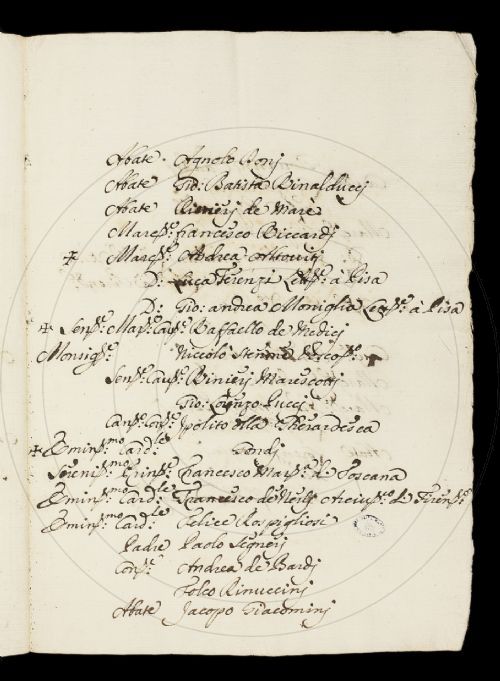 Abate Agnolo Bonsj
Abate Gio: Batista Rinalduccj
Abate Rinierj de Mare
March:e Francesco Riccardj
✠ March:e Andrea Altovitj
D: Luca Terenzi Lett:e à Pisa
D: Gio: Andrea Moniglia Lett:e à Pisa
✠ Raffaello de Medicj
Monsig:re Niccolò
Rinierj Marescottj
Gio: Lorenzo Puccj
Ipolito della Gherardesca
✠ Emin:mo Card:le Gondj
Sereniss:mo Prin:pe Francesco Mar:a di Toscana
Emin:mo Card:le Francesco de Nerlj Arciv:o di Firen:e
Emin:mo Card:le Felice Rospigliosi
Padre Paolo Segnerj
Andrea de Bardj
Folco Rinuccinj
Abate Jacopo Giacominj